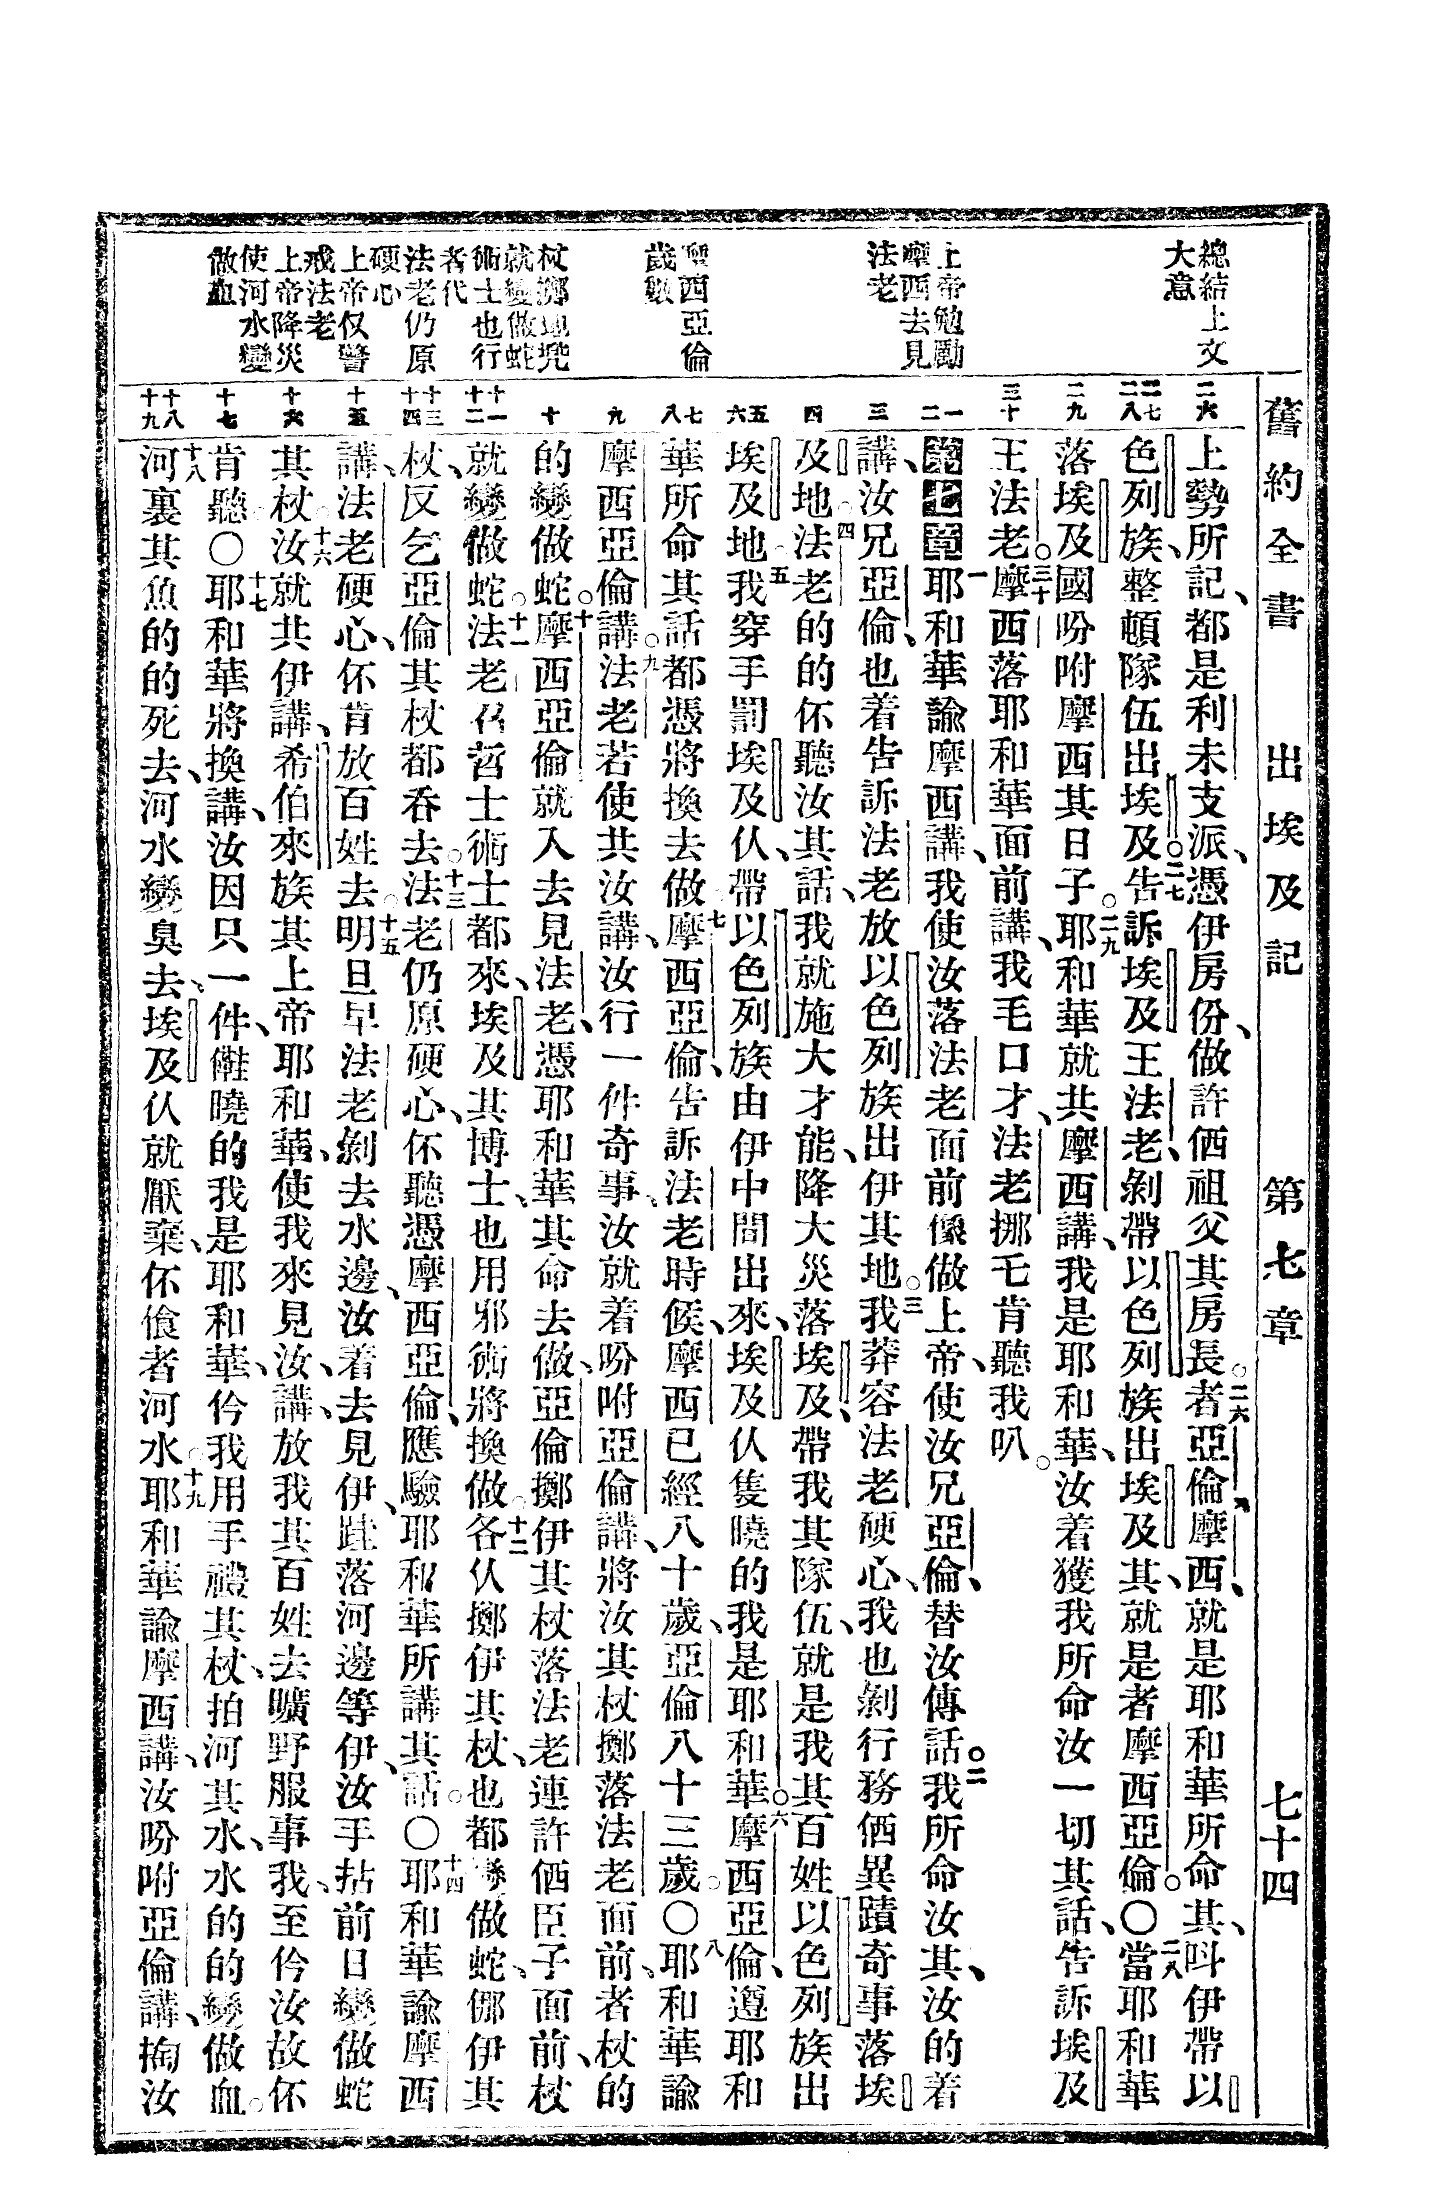 舊約全書 出埃及記 第七章 七十四
總結上文
大意
上帝勉勵
摩西去見
法老
摩西亞倫
歲數
杖擲地兜
就變做蛇
術士也行
者代
法老仍原
硬心
上帝仅警
戒法老
上帝降災
使河水變
做血
二六
二七
二八
二九
三十
一
二
三
四
五
六
七
八
九
十
十一
十二
十三
十四
十五
十六
十七
十八
十九
上勢所記、都是利未支派、憑伊房份、做許価祖父其房長。二六者亞倫、摩西、就是耶和華所命其、呌伊帶以
色列族、整頓隊伍出埃及。二七告訴埃及王法老、剝帶以色列族出埃及其、就是者摩西亞倫。〇二八當耶和華
落埃及國吩咐摩西其日子。二九耶和華就共摩西講、我是耶和華、汝着獲我所命汝一切其話、告訴埃及
王法老。三十摩西落耶和華面前講、我毛口才、法老挪乇肯聽我叭。
第七章一耶和華諭摩西講、我使汝落法老面前像做上帝、使汝兄亞倫、替汝傳話。二我所命汝其、汝的着
講、汝兄亞倫、也着告訴法老放以色列族出伊其地。三我莽容法老硬心、我也剝行務価異蹟奇事落埃
及。四地法老的的伓聽汝其話、我就施大才能、降大災落埃及、帶我其隊伍、就是我其百姓以色列族出
埃及地。五我穿手罰埃及仈、帶以色列族由伊中間出來、埃及仈隻曉的我是耶和華。六摩西亞倫、遵耶和
華所命其話都憑將換去做。七摩西亞倫、告訴法老時候、摩西已經八十歲、亞倫八十三歲。〇八耶和華諭
摩西亞倫講。九法老若使共汝講、汝行一件奇事、汝就着吩咐亞倫講、將汝其杖擲落法老面前、者杖的
的變做蛇。十摩西亞倫就入去見法老、憑耶和華其命去做、亞倫擲伊其杖落法老連許価臣子面前、杖
就變做蛇。十一法老召哲士術士都來、埃及其博士、也用邪術將換做。十二各仈擲伊其杖、也都變做蛇、㑚伊其
杖、反乞亞倫其杖都吞去。十三法老仍原硬心、伓聽憑摩西亞倫、應驗耶和華所講其話。〇十四耶和華諭摩西
講、法老硬心、伓肯放百姓去。十五明旦早法老剝去水邊、汝着去見伊、跬落河邊等伊、汝手拈前日變做蛇
其杖。十六汝就共伊講、希伯來族其上帝耶和華、使我來見汝、講、放我其百姓去曠野服事我、至仱汝故伓
肯聽。〇十七耶和華將換講、汝因只一件、㒲曉的我是耶和華、仱我用手禮其杖、拍河其水、水的的變做血。
十八河裏其魚的的死去、河水變臭去、埃及仈就厭棄、伓食者河水。十九耶和華諭摩西講、汝吩咐亞倫講、掏汝